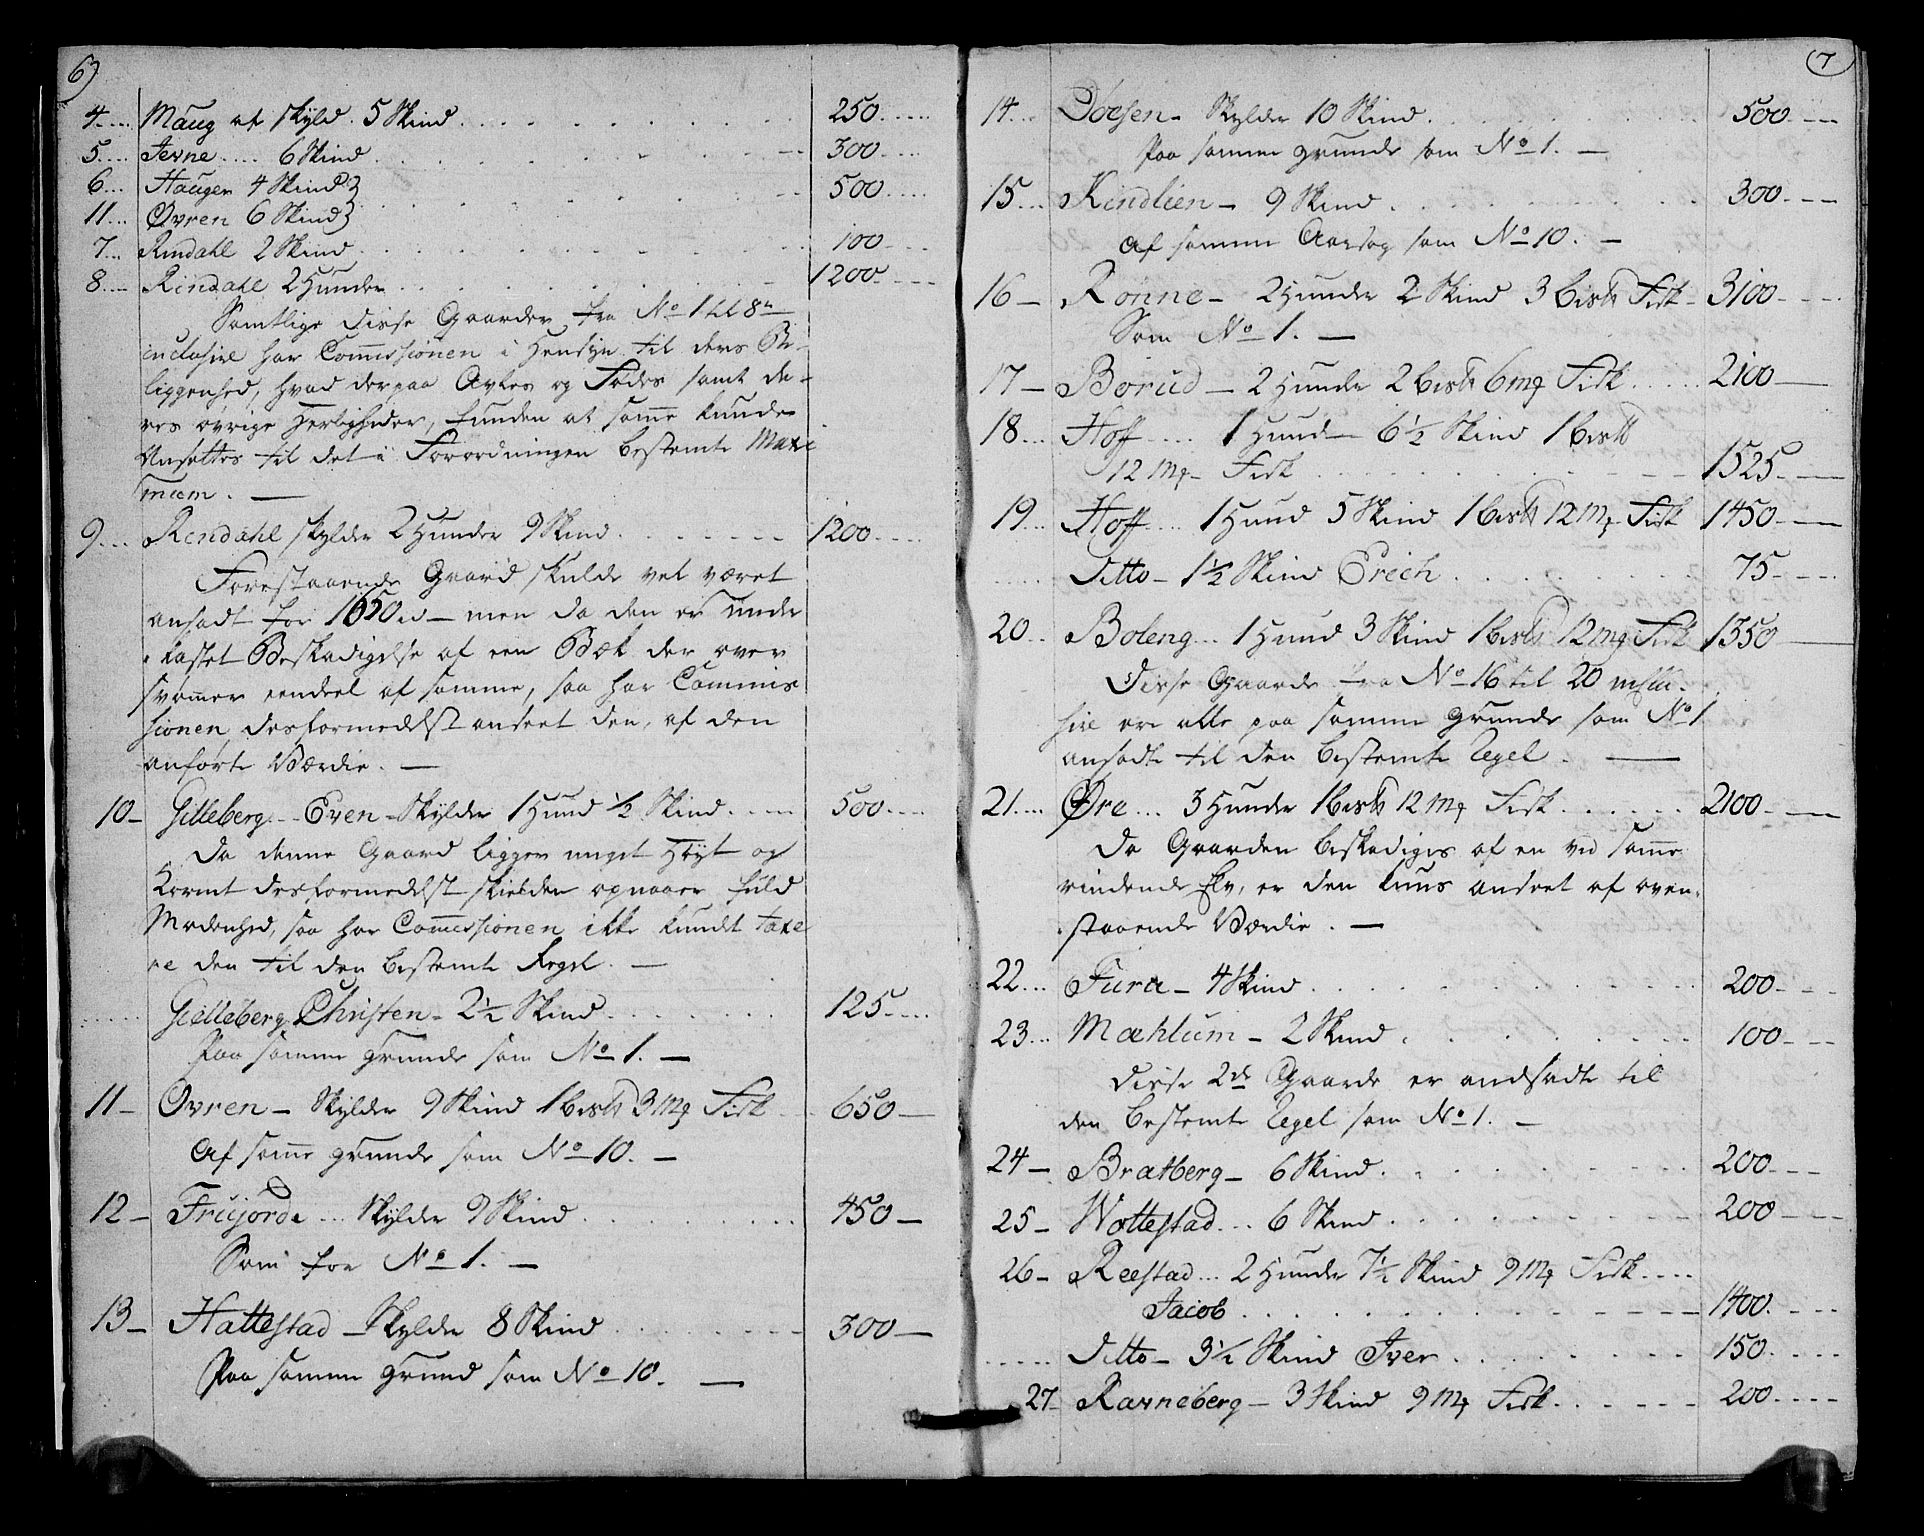 6)
4 .... Maug af skyld . 5 Skind . . . 250 . . . .
5 .... Jevne .... 6 Skind . . . 300 . . . .
6 ... Haugen 4 Skind } . . . 500 . . . .
11 ... Øvren 6 Skind }
7 ... Rindahl 2 Skind . . . 100 . . .
8 .... Rindahl 2 Hunder . . . 1200 . . . .
Samtlige disse Gaarder fra No 1 til 8
inclusive har Commissionen i Hensyn til deres Be-
liggenhed, hvad derpaa Avles og Fødes samt de-
res øvrige Herligheder, funden at samme kunde
Ansettes til det i Forordningen bestemte Maxi
mum . —
9 ... Rendahl skylder 2 Hunder 9 Skind . . . 1200 . . . .
Forestaaende Gaard skulde vel været
ansadt for 1650 rd — men da den er under
kastet Beskadigelse af een Bæk der over
svømer eendeel af samme, saa har Commis
sionen desformedelst andseet den, af den
anførte Værdie . —
10 — Gilleberg ... Even — Skylder 1 Hund ½ Skind .... 500 . . . .
Da denne Gaard ligger meget Høyt og
Kornet desformedelst skielden opnaaer fuld
Modenhed, saa har Commissionen ikke kundet taxe
re den til den bestemte Regel . —
...... Gilleberg Christen — 2½ Skind . . . 125 . . . .
Paa samme grunde som No 1. —
11 — Øvren — Skylder 9 Skind 1 bisk 3 mk Fisk . . . 650 —
Af same grunde som No 10. —
12 — Friijorde ... Skylder 9 Skind . . . 450 —
Som for No 1. —
13 — Hattestad — Skylder 8 Skind . . . 300 —
Paa samme Grund som No 10. —
7
14 ... Døesen — Skylder 10 Skind . . . 500 . — —
Paa samme grunde som No 1. —
15 ... Kindlien — 9 Skind . . . 300 . — —
Af samme Aarsag som No 10. —
16 — Rønne — 2 Hunder 2 Skind 3 bisk Fisk — 3100 . — —
Som No 1. —
17 — Borud — 2 Hunder 2 bisk 6 mk Fisk ..... 2100 —
18 ... Hoff .... 1 Hund — 6½ Skind 1 bisk
12 mk — Fisk . . . 1525 . — —
19 ... Hoff ... 1 Hund 5 Skind 1 bisk 12 mk — Fisk 1450 . — —
...... Ditto — 1½ Skind Erich . . . 75 . — —
20 .. Boleng ... 1 Hund 3 Skind 1 bisk 12 mk Fisk 1350 —
Disse Gaarde fra No 16 til 20 inclu-
sive ere alle paa samme grunde som No 1
ansadte til den bestemte Regel . —
21 .... Øre ... 3 Hunder 1 bisk 12 mk Fisk . . . 2100 . — —
Da Gaarden beskadiges af en ved same
rindende Elv, er den kuns andseet af oven-
staaende Værdie . —
22 ... Fura — 4 Skind . . . 200 . — —
23 ... Mæhlum — 2 Skind . . . 100 . — —
Disse 2de Gaarde er andsadte til
den bestemte Regel som No 1. —
24 — Bratberg — 6 Skind . . . 200 . — —
25 — Wottestad ... 6 Skind . . . 200 . — —
26 — Reestad ... 2 Hunder 7½ Skind 9 mk Fisk ....
Jacob . . . 1400 . — —
..... Ditto — 3½ Skind Iver . . . 150 . — —
27 — Ravneberg — 3 Skind 9 mk Fisk . . . 200 . — —